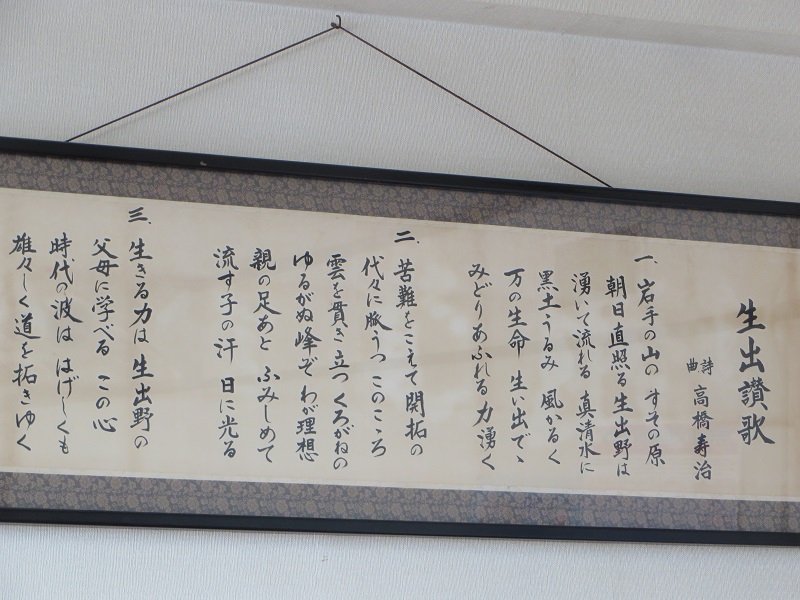 生出讃歌
詩曲 高橋寿治
一、岩手の山の すその原
朝日直照る 生出野は
湧いて流れる 真清水に
黒土うるみ 風かるく
万の生命 生い出でゝ
みどりあふれる 力湧く
二、苦難をこえて 開拓の
代々に脈うつ このこゝろ
雲を貫き立つ くろがねの
ゆるがぬ峰ぞ わが理想
親の足あと ふみしめて
流す子の汗 日に光る
三、生きる力は 生出野の
父母に学べる この心
時代の波は はげしくも
雄々しく道を 拓きゆく